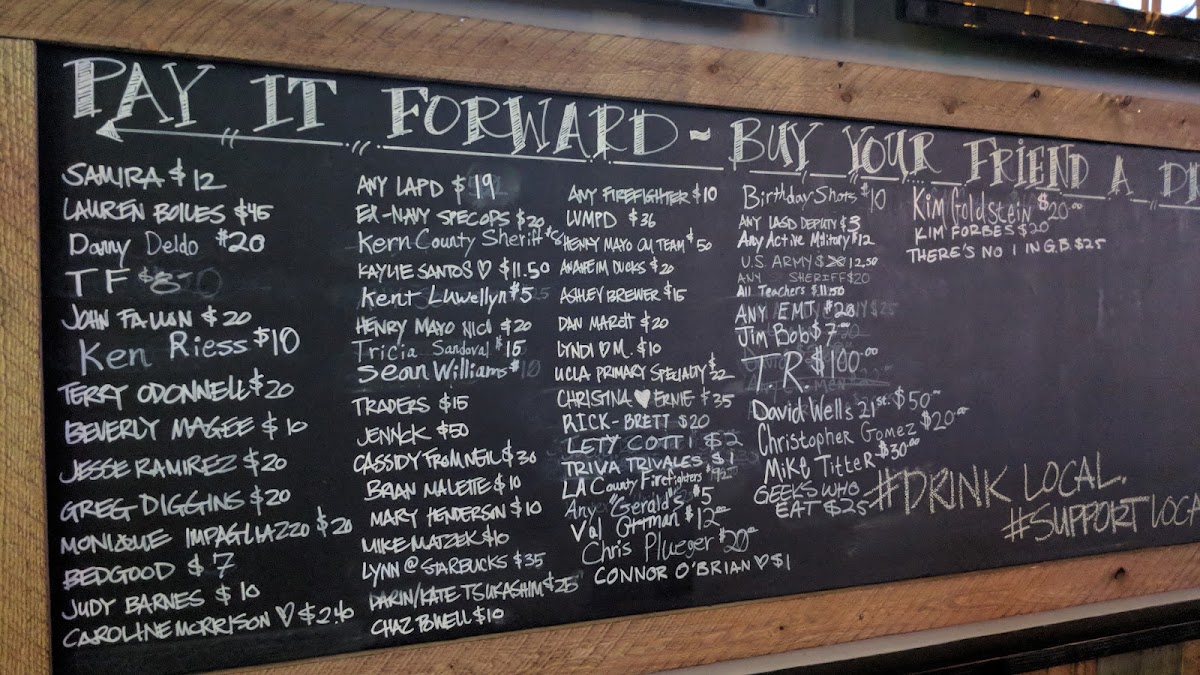 PAY IT FORWARD ~ BUY YOUR FRIEND A
SAMIRA $12
LAUREN BOILES $45
Danny Deldo $20
TF $8
JOHN FALLON $20
Ken Riess $10
TERRY ODONNELL $20
BEVERLY MAGEE $10
JESSE RAMIREZ $20
GREG DIGGINS $20
MONIQUE IMPAGLIAZZO $20
BEDGOOD $7
JUDY BARNES $10
CAROLINE MORRISON ♡ $2.40
ANY LAPD $19
EX-NAVY SPECOPS $20
Kern County Sheriff
KAYLIE SANTOS ♡ $11.50
Kent Luwellyn $5
HENRY MAYO NICU $20
Tricia Sandoval $15
Sean Williams $10
TRADERS $15
JENNCK $50
CASSIDY FROM NEIL $30
BRIAN MALETTE $10
MARY HENDERSON $10
MIKE MATZEK $10
LYNN @ STARBUCKS $35
DARIN/KATE TSUKASHIMA $25
CHAZ POWELL $10
ANY FIREFIGHTER $10
LVMPD $36
HENRY MAYO TEAM $50
ANAHEIM DUCKS $20
ASHLEY BREWER $15
DAN MAROTT $20
LYNDI ♡ M. $10
UCLA PRIMARY SPECIALTY $22
CHRISTINA ♥ ERNIE $35
RICK-BRETT $20
LETY COTTI $2
TRIVA TRIVALES $1
LA County Firefighters
Any "Gerald"s $5
Val Ottman $12.00
Chris Plueger $20.00
CONNOR O'BRIAN ♡ $1
Birthday Shots $10
ANY LASD DEPUTY $3
Any Active Military $12
U.S ARMY $ 12.50
ANY SHERIFF $20
All Teachers $11.50
ANY EMT $20
Jim Bob $7
T.R. $100.00
David Wells 21st. $50.00
Christopher Gomez $20.00
Mike Titter $30.00
GEEKS WHO
EAT $25
Kim Goldstein $20.00
KIM FORBES $20
THERE'S NO 1 IN G.B. $25
#DRINK LOCAL.
#SUPPORT LOCA